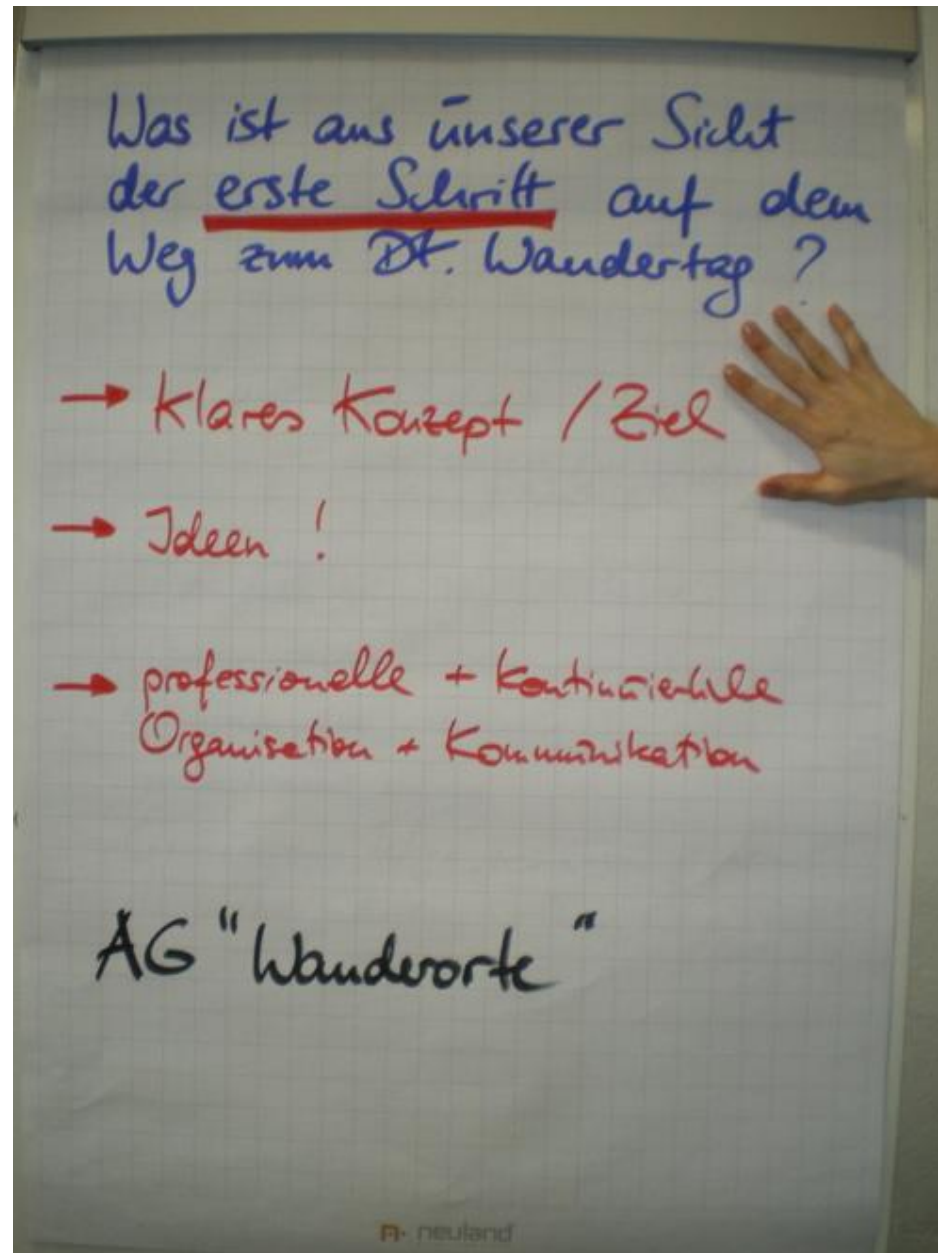 Was ist aus unserer Sicht
der erste Schritt auf dem
Weg zum Dt. Wandertag ?
→ Klares Konzept / Ziel
→ Ideen !
→ professionelle + kontinuierliche
Organisation + Kommunikation
AG "Wanderorte"
neuland